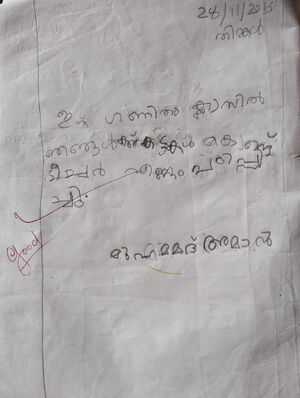 28/11/2015
തിങ്കൾ
ഇന്ന് ഗണിതം ക്ലാസിൽ
ഞങ്ങൾക്ക് കട്ടകൾ കൊണ്ട്
ടീച്ചർ എണ്ണം പഠിപ്പി
ച്ചു.
Good
മുഹമ്മദ് അമാൻ